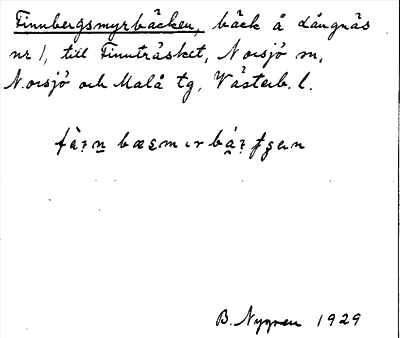 Finnbergsmyrbäcken, bäck å Långnäs
nr 1, till Finnträsket, Norsjö sn,
Norsjö och Malå tg, Västerb. l.
B. Nygren 1929